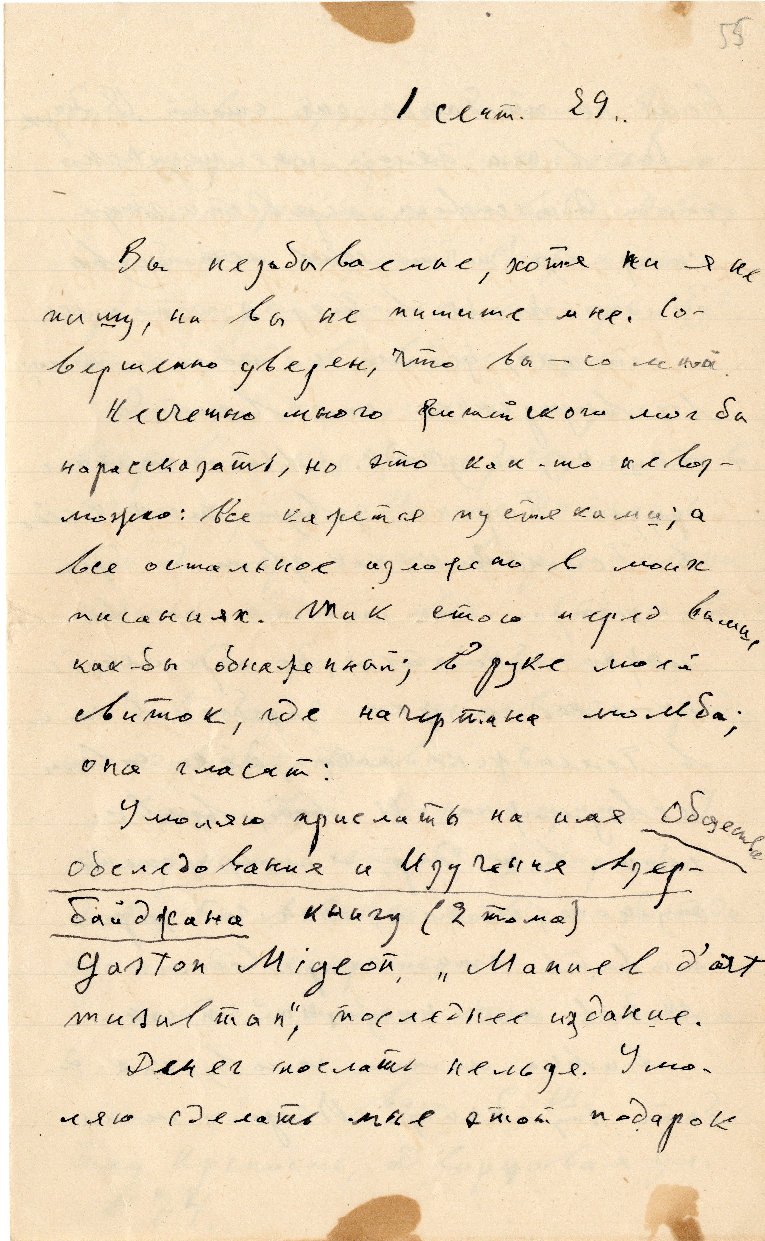 55
1 сент. 29..
Вы незабываемые, хотя ни я не
пишу, ни вы не пишите мне. Со-
вершенно уверен, что вы – со мной.
Несчетно много житейского мог бы
нарассказать, но это как-то невоз-
можно: все кажется пустяками; а
все остальное изложено в моих
писаниях. Так стою перед вами,
как-бы обнаженный; в руке моей
свиток, где начертана мольба;
она гласит:
Умоляю прислать на имя Общества
обследования и Изучения Азер-
байджана книгу (2 тома)
Gaston Migeon, „Manuel d'art
musulman", последнее издание.
Денег послать нельзя. Умо-
ляю сделать мне этот подарок